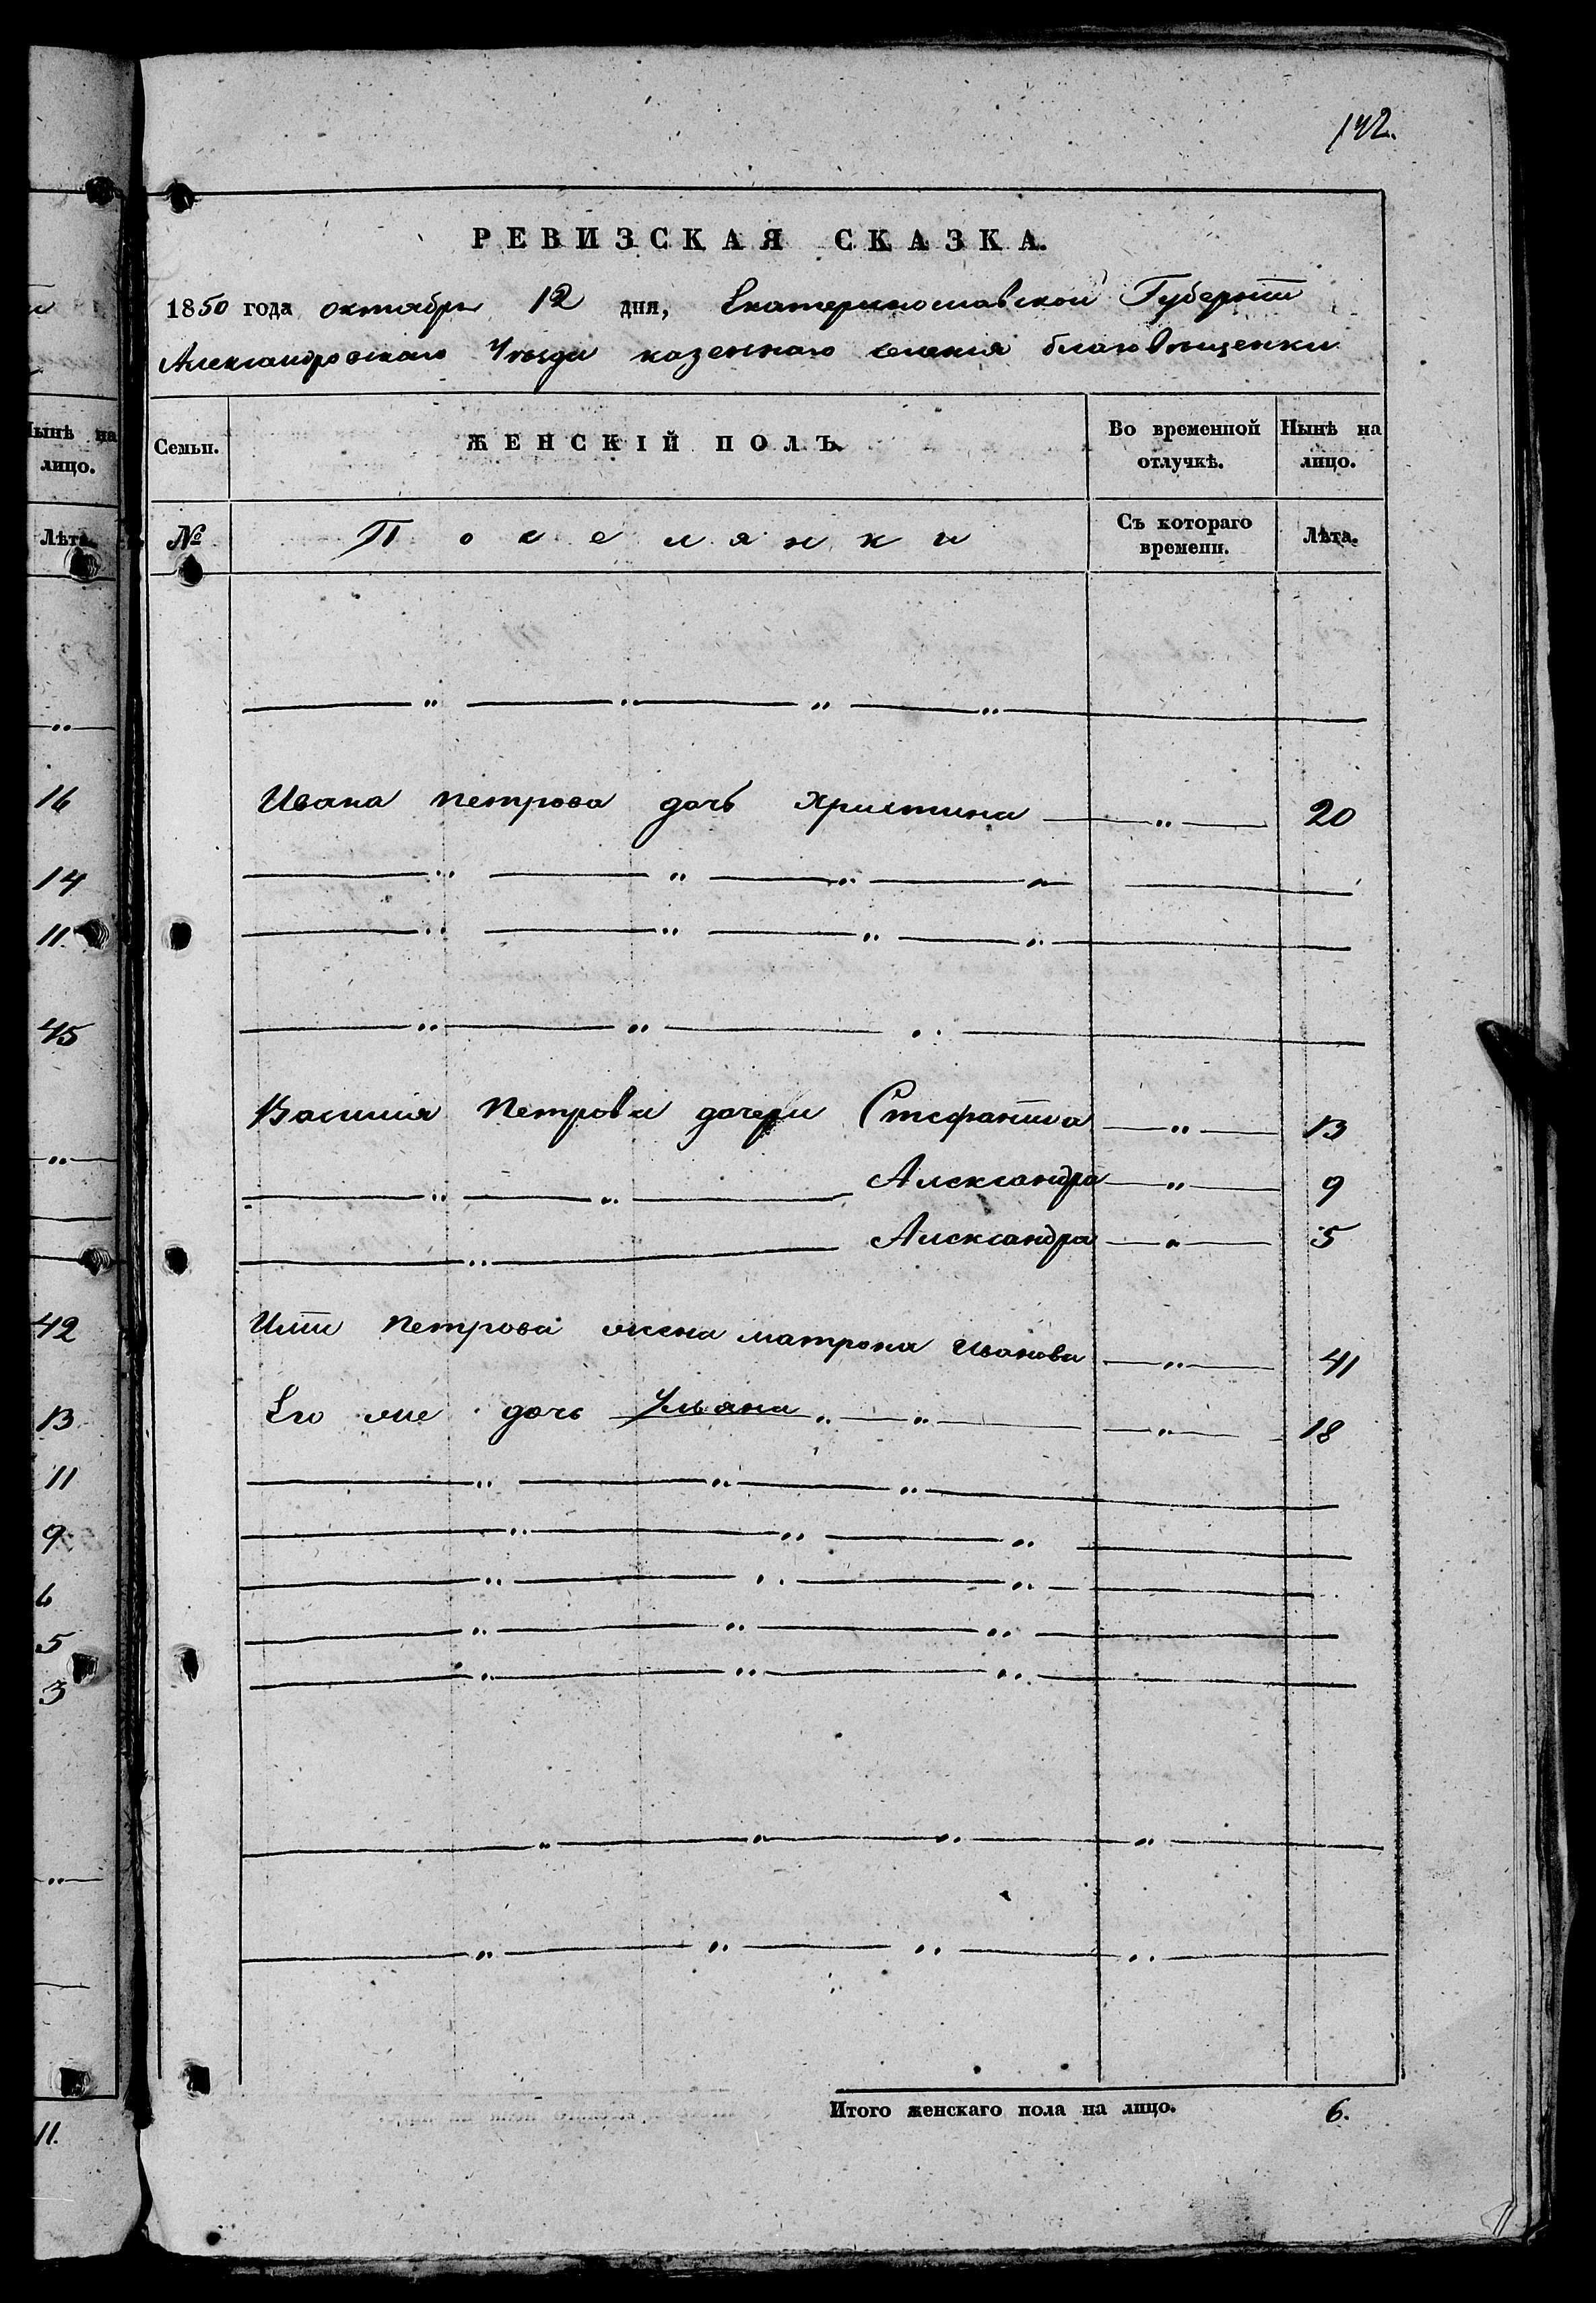 142.
РЕВИЗСКАЯ СКАЗКА.
1850 года октября 12 дня, Екатеринославской Губернiи
Александровскаго Уѣзда казеннаго селенiя благовѣщенки
Нынѣ на лицо.
Лѣта.
Семьи.
ЖЕНСКІЙ ПОЛЪ.
Во временной отлучкѣ.
Нынѣ на лицо.
№
Поселянки
Съ котораго времени.
Лѣта.
— " — " — " — "
— " —
16
Ивана петрова дочь христина — " — 20
14
— " — " — " — "
11
— " — " — " — "
45
— " — " — " —
Василия петрова дочери Стефанiида — " — 13
— " —
— " — " — Александра — " — 9
— " — Александра — " — 5
42
Илiи петрова жена матрона Иванова — " — 41
13
Его же дочь Ульяна " — " — " — 18
11
— " — " — " —
9
— " — " — "
6
— " — " — " —
5
— " — " — " —
3
— " — " — " —
— " — " — " — " —
— " —
— " — " — " — " —
Итого женскаго пола на лицо. 6.
11.